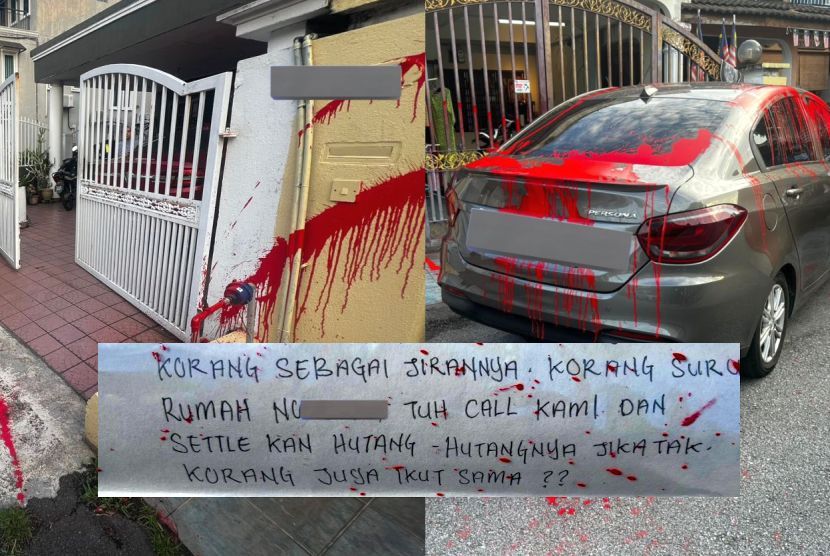 PERSONA
KORANG SEBAGAI JIRANNYA. KORANG SURO
RUMAH NO TUH CALL KAMI DAN
SETTLE KAN HUTANG-HUTANGNYA JIKA TAK.
KORANG JUGA IKUT SAMA ??